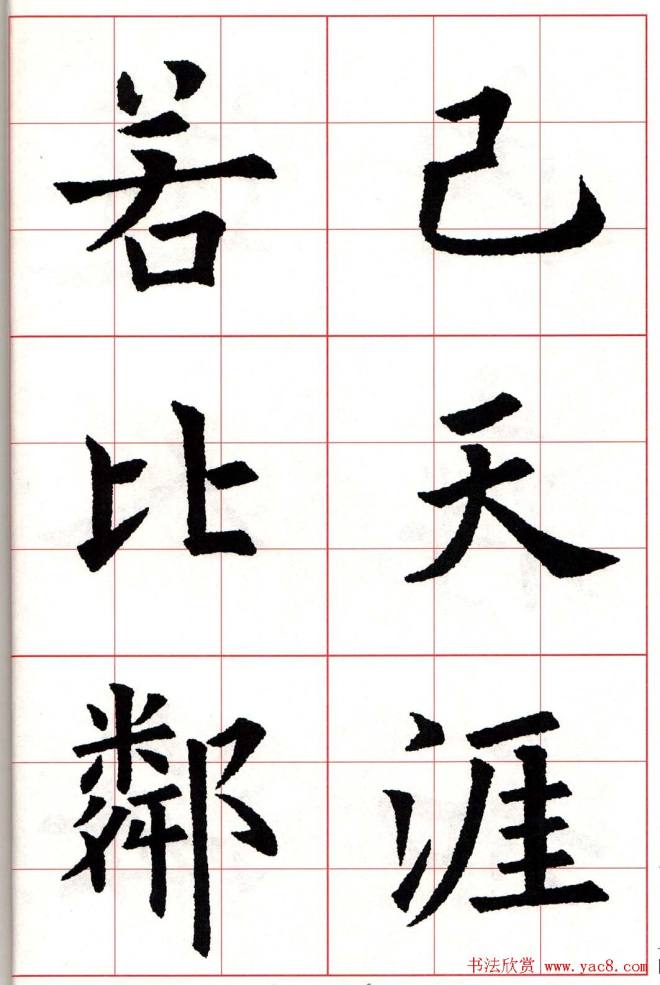 己天涯
若比鄰
书法欣赏 www.yac8.com